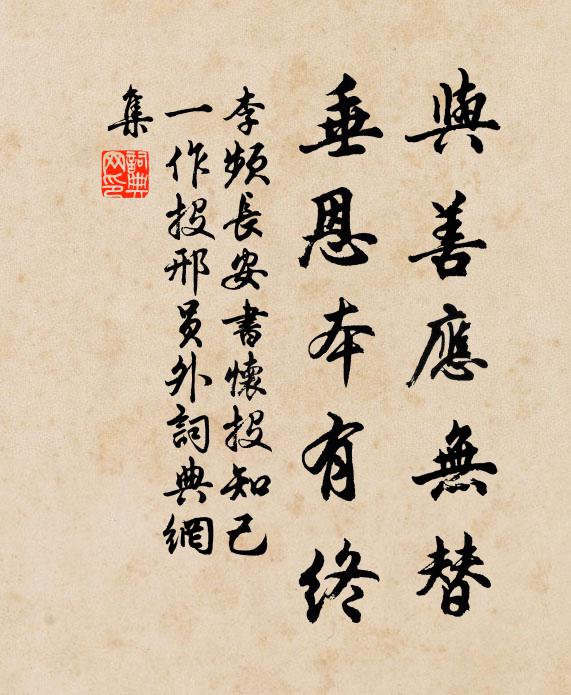 與善應無替
垂恩本有終
李頻長安書懷投知己
一作投邢員外詞典網
集
詞典網印